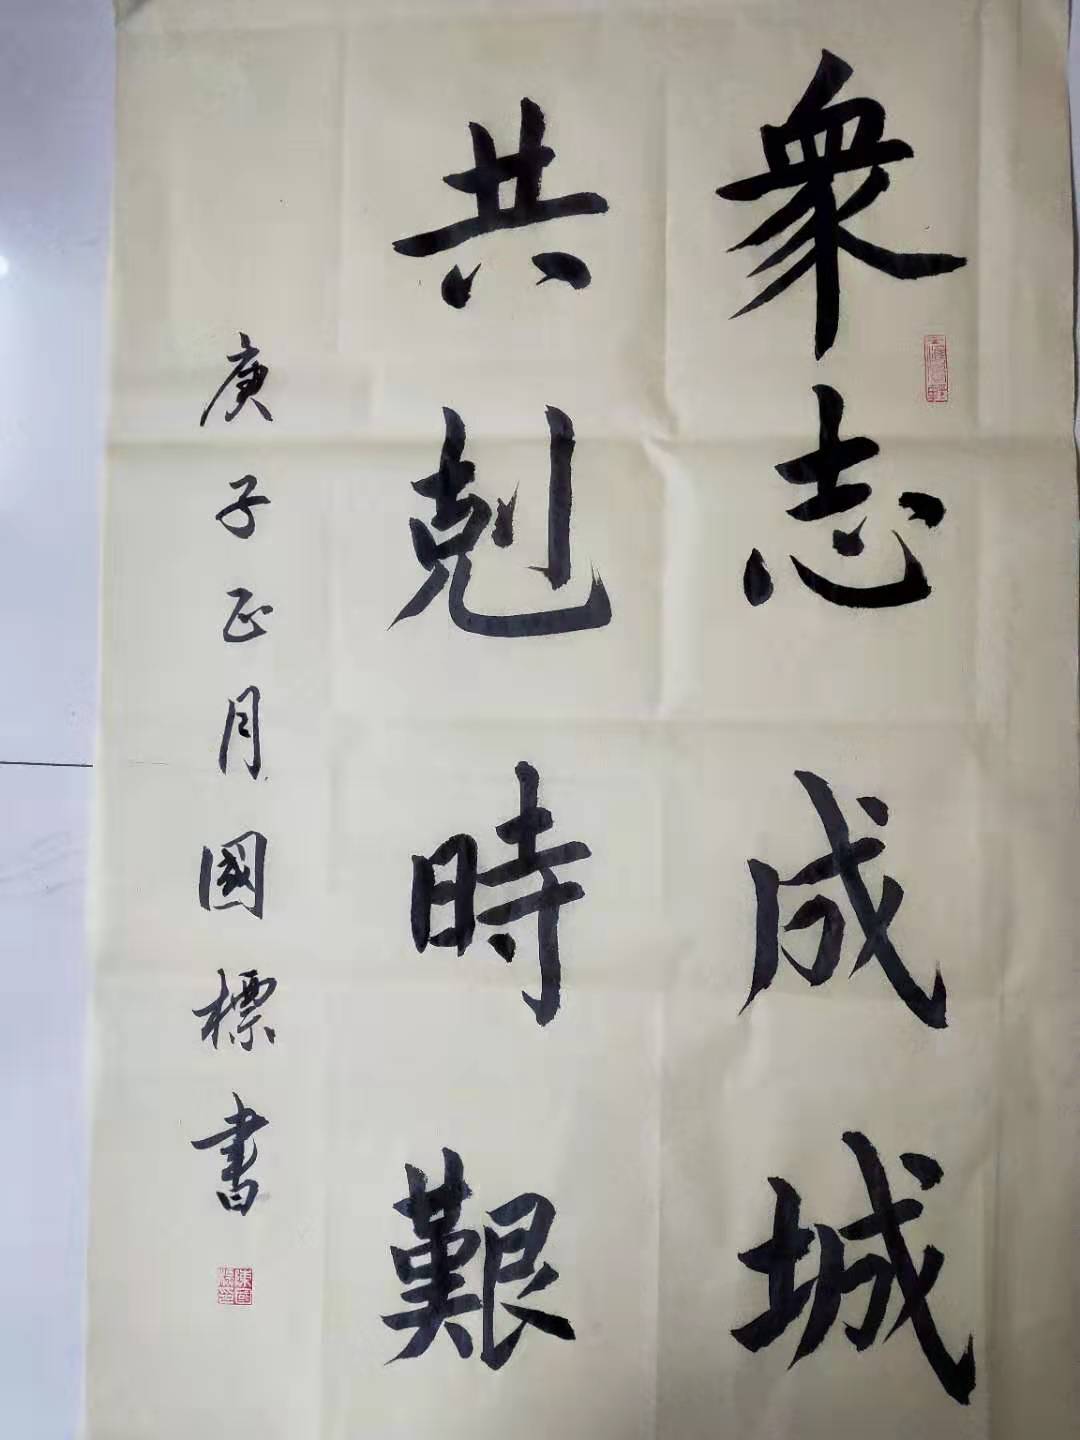 衆志成城
共剋時艱
庚子正月國標書